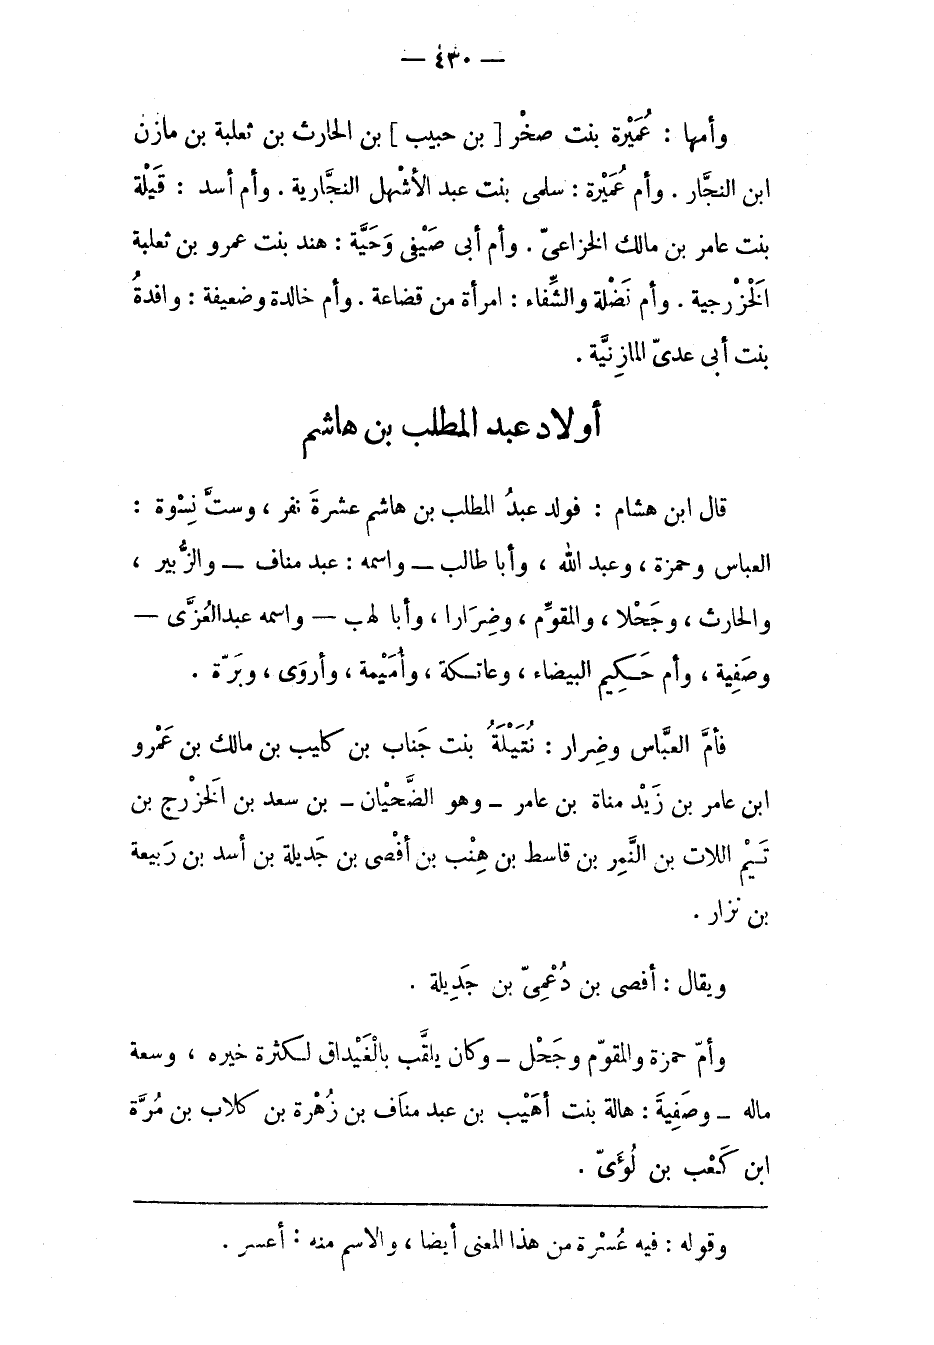 — ٤٣٠ —
وأمها : عُمَيْرة بنت صخْر [ بن حبيب ] بن الحارث بن ثعلبة بن مازن
ابن النجَّار . وأم عُمَيْرة : سلمى بنت عبد الأشْهل النجَّارية . وأم أسد : قَيْلة
بنت عامر بن مالك الخزاعىّ . وأم أبى صَيْفى وَحَيَّة : هند بنت عمرو بن ثعلبة
الَخْزْرجية . وأم نَضْلة والشِّفاء : امرأة من قضاعة . وأم خالدة وضعيفة : وافدةُ
بنت أبى عدىّ المازِنيَّة .
أولاد عبد المطلب بن هاشم
قال ابن هشام : فولد عبدُ المطلب بن هاشم عشرةَ نفر ، وستَّ نِسْوة :
العباس وحمزة ، وعبد الله ، وأبا طالب — واسمه : عبد مناف — والزُّبير ،
والحارث ، وجَحْلا ، والمقوِّم ، وضِرَارا ، وأبا لهب — واسمه عبدالعُزَّى —
وصَفِية ، وأم حَكِيم البيضاء ، وعاتكة ، وأُمَيْمة ، وأروَى ، وبَرَّة .
فأمَّ العبَّاس وضِرار : نُتَيْلَةُ بنت جَناب بن كليب بن مالك بن عَمْرو
ابن عامر بن زَيْد مناة بن عامر – وهو الضَّحيْان – بن سعد بن الَخزْرج بن
تَيْم اللات بن النَّمِر بن قاسط بن هِنْب بن أفْصى بن جَديلة بن أسد بن رَبيعة
بن نزار .
ويقال : أفصى بن دُعْمِىّ بن جَدِيلة .
وأمّ حمزة والمقوّم وجَحْل – وكان يلقَّب بالْغَيْداق لكثرة خيره ، وسعة
ماله – وصَفِيةَ : هالة بنت أهَيْب بن عبد منَاَف بن زُهْرة بن كلاب بن مُرَّة
ابن كَعْب بن لُؤَىّ .
وقوله : فيه عُسْرة من هذا المعنى أيضا ، والاسم منه : أعسر .